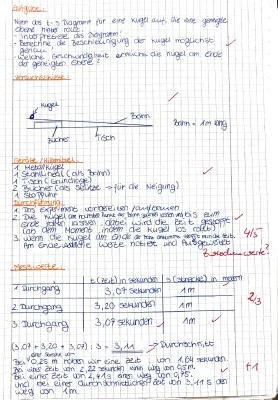 Aufgabe:
Nimm das t-s Diagramm für eine Kugel auf, die eine geneigte
Ebene hinab rollt.
- Interpretiere das Diagramm!
- Berechne die Beschleunigung der Kugel möglichst
genau.
- Welche Geschwindigkeit erreicht die Kugel am Ende
der geneigten Ebene?
Versuchsskizze:
Kugel
Bahn
Bahn = 1m lang
Bücher
Tisch
Geräte / Hilfsmittel:
1 Metallkugel
1 Stahllineal (als Bahn)
1 Tisch (Grundlage)
2 Bücher (als Stütze → für die Neigung)
1 Stoppuhr
Durchführung:
1. Das Experiment vorbereiten/aufbauen
2. Die Kugel am Bahn und bis zum
Ende rollen lassen, dabei wird die Zeit gestoppt
(ab dem Moment, indem die Kugel los rollt)
3. wenn die Kugel am Ende der Bahn die Zeit.
Am Ende werte notiert und Ausgewertet
4/5
Zwischenwerte?
Messwerte:
t (Zeit) in Sekunden
s (Strecke) in metern
1 Durchgang
3,07 Sekunden
1m
2 Durchgang
3,20 Sekunden
1m
3 Durchgang
3,07 Sekunden
1m
2/3
(3,07 + 3,20 + 3,07) : 3 = 3,11 → Durchschnitt
Bei 0,25 m haben wir eine Zeit von 1,64 Sekunden.
Bei eine Zeit von 2,22 Sekunden einen Weg von 0,5m.
Bei einer Zeit von einen Weg von 0,75.
und bei einer Durchschnittlichen Zeit von 3,11 s den
Weg von 1m.
+1